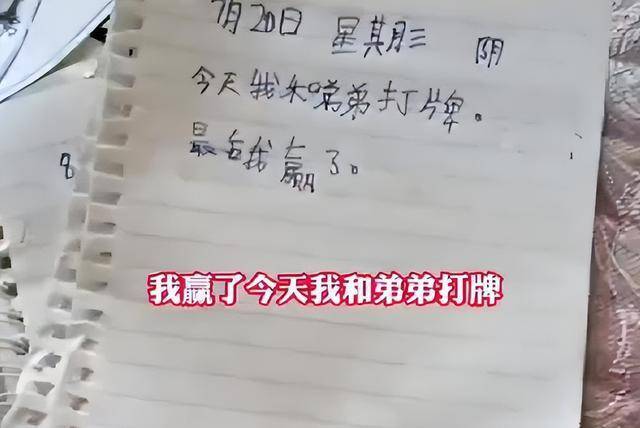 7月20日 星期三 阴
今天我和弟弟打牌。
最后我赢了。
8
我赢了今天我和弟弟打牌